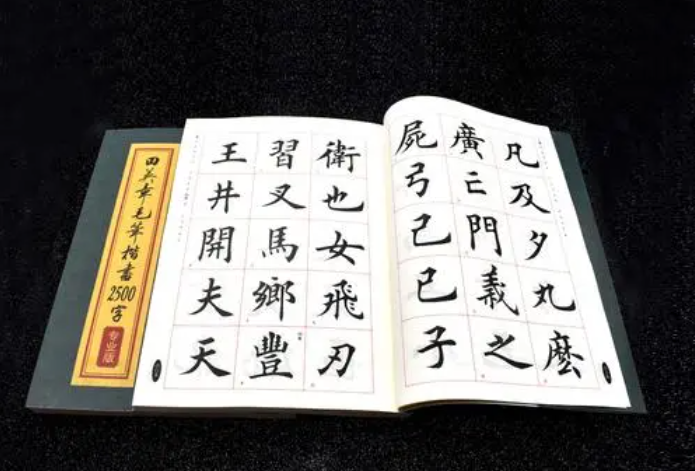 田英章毛筆楷書2500字
专业版
凡及夕丸麼
廣亡門義之
屍弓己已子
衛也女飛刃
習叉馬鄉豐
王井開夫天